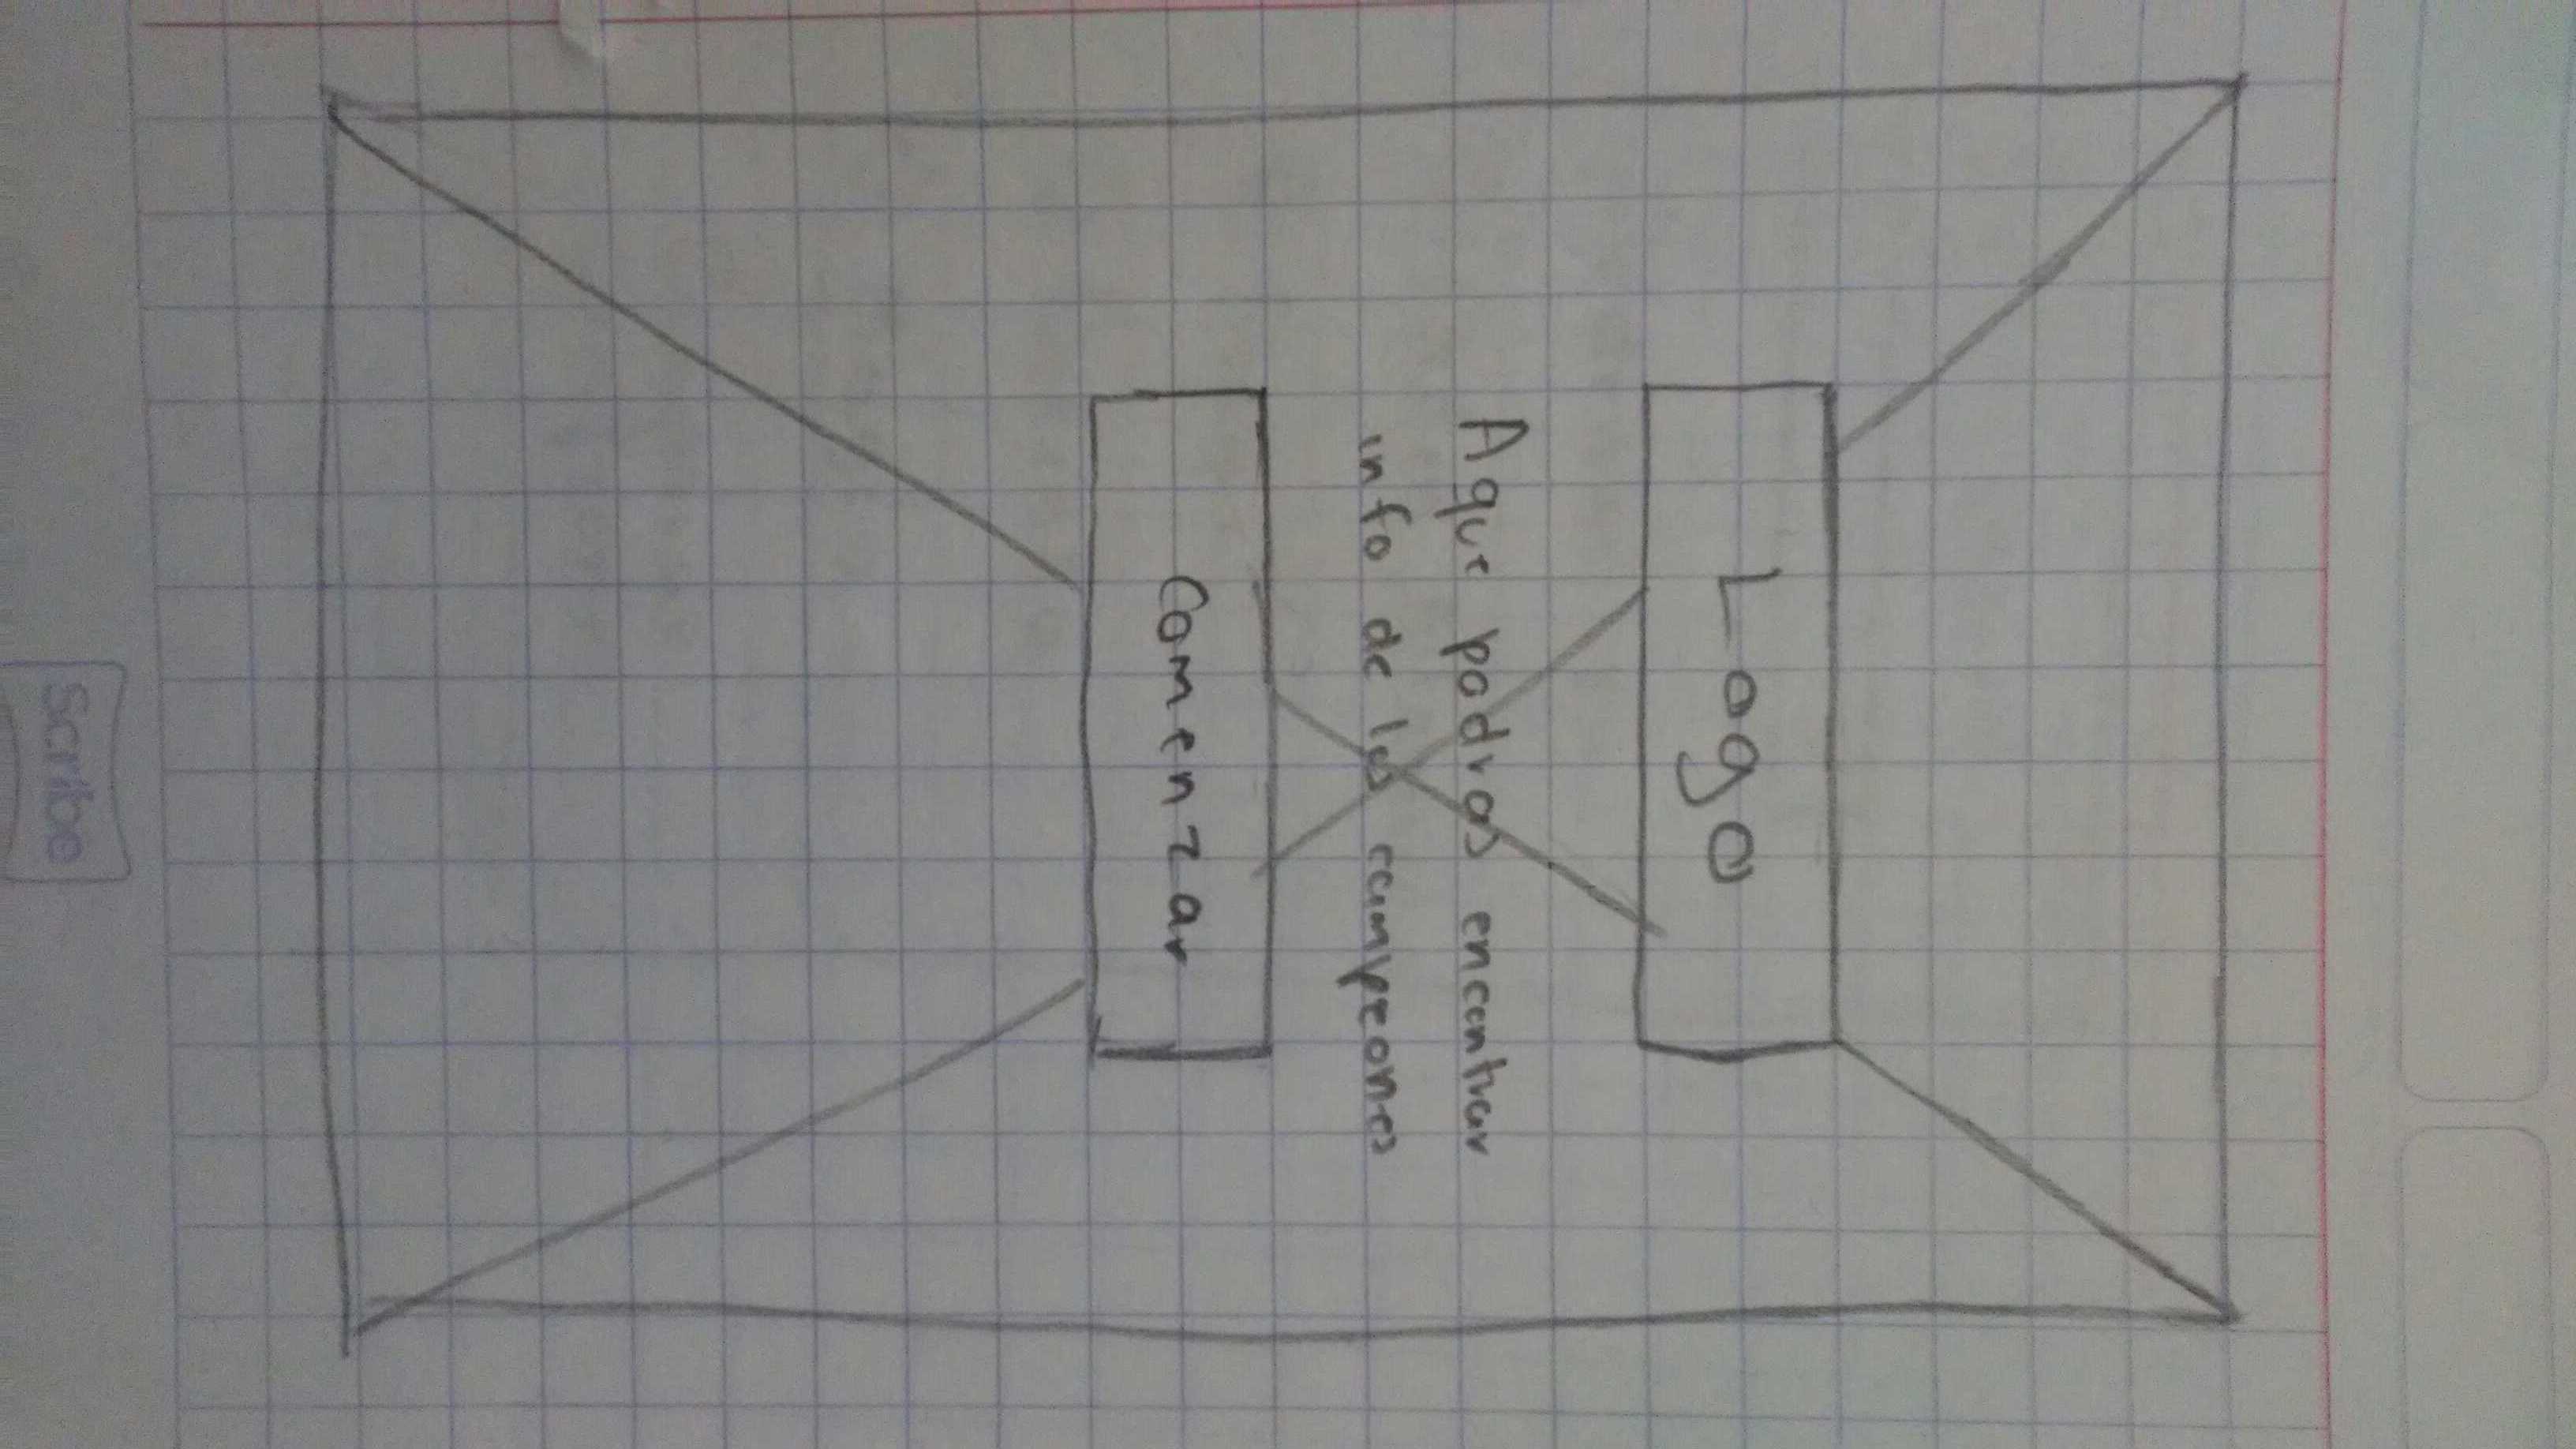 Logo
Aque podras encontrar
info de los campeones
Comenzar
Scribe